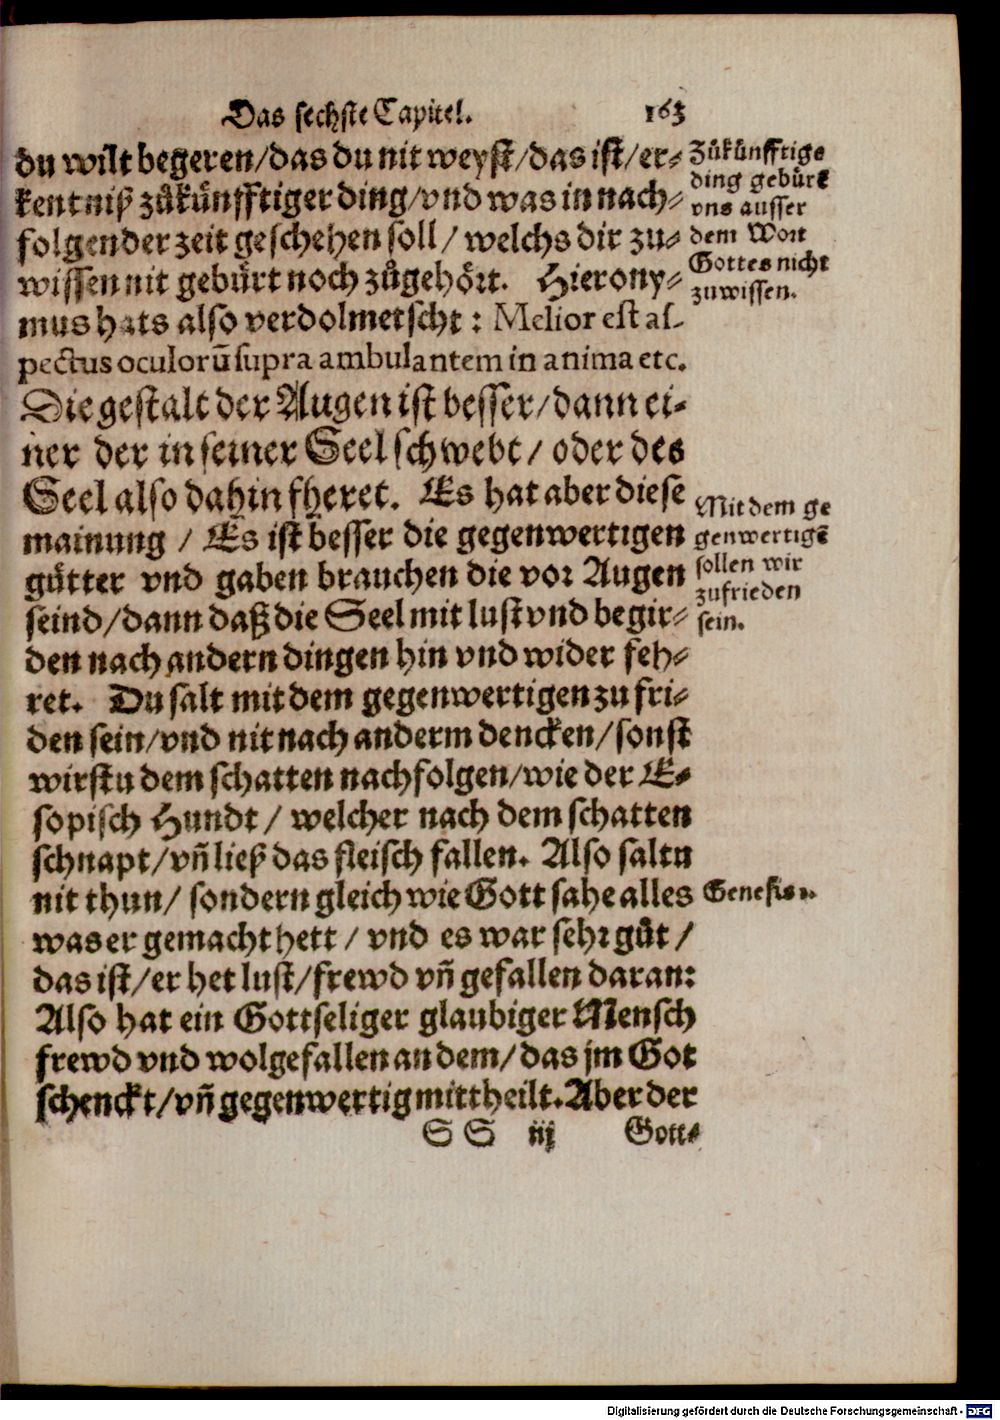 Das sechste Capitel. 163
du wilt begeren/das du nit weyst/das ist/er-
kentniß zůkünfftiger ding/vnd was in nach-
folgender zeit geschehen soll/ welchs dir zu-
wissen nit gebürt noch zůgehört. Hierony-
mus hats also verdolmetscht: Melior est as-
pectus oculorū supra ambulantem in anima etc.
Die gestalt der Augen ist besser/dann ei-
ner der in seiner Seel schwebt/ oder des
Seel also dahin fheret. Es hat aber diese
mainung / Es ist besser die gegenwertigen
gütter vnd gaben brauchen die vor Augen
seind/dann daß die Seel mit lust vnd begir-
den nach andern dingen hin vnd wider feh-
ret. Du salt mit dem gegenwertigen zu fri-
den sein/vnd nit nach anderm dencken/sonst
wirstu dem schatten nachfolgen/wie der E-
sopisch Hundt/ welcher nach dem schatten
schnapt/vñ ließ das fleisch fallen. Also saltu
nit thun/ sondern gleich wie Gott sahe alles
was er gemacht hett/ vnd es war sehr gůt/
das ist/er het lust/frewd vñ gefallen daran:
Also hat ein Gottseliger glaubiger Mensch
frewd vnd wolgefallen an dem/das jm Got
schenckt/vñ gegenwertig mittheilt. Aber der
SS iij Gott-
Zůkünfftige
ding gebürt
vns ausser
dem Wort
Gottes nicht
zuwissen.
Mit dem ge
genwertigē
sollen wir
zufrieden
sein.
Genesis 1.
Digitalisierung gefördert durch die Deutsche Forschungsgemeinschaft - DFG